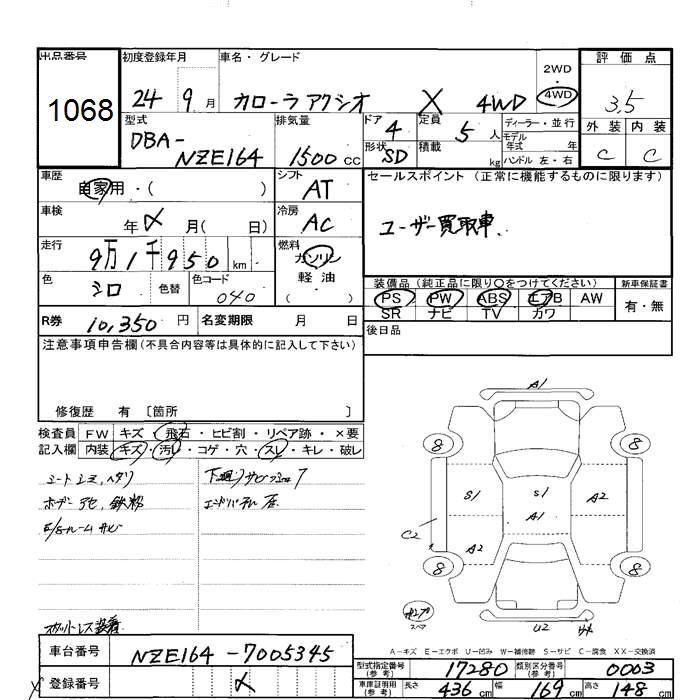 出品番号 初度登録年月 車名・グレード 2WD・4WD 評価点
1068 24 9月 カローラアクシオ X 4WD 3.5
型式 DBA-NZE164 排気量 1500cc ドア 4 定員 5人 ディーラー・並行
形状 SD 積載 kg モデル年式 年式 ハンドル 左・右
外装 内装
C C
車歴 自家用・( ) シフト AT
車検 年 月( 日) 冷房 AC
走行 9万1千950km 燃料 ガソリン 軽油 ( )
色 シロ 色替 色コード 040
R券 10,350円 名変期限 月 日
セールスポイント(正常に機能するものに限ります)
ユーザー買取車
装備品(純正品に限り○をつけてください) 新車保証書
PS PW ABS エアB AW 有・無
SR ナビ TV カワ
後日品
注意事項申告欄(不具合内容等は具体的に記入して下さい)
修復歴 有 〔箇所 〕
検査員 FW キズ・飛石・ヒビ割・リペア跡・×要
記入欄 内装 キズ・汚レ・コゲ・穴・スレ・キレ・破レ
シートシミ、ヘタリ
ボデー アセ、鉄粉
E/gルームサビ
下廻りサビ
A1
8 8
S1 S1 A2
A1
C2 A2
8 8
テンプ
スペア
U2
A-キズ E-エクボ U-凹み W-補修跡 S-サビ C-腐食 XX-交換済
車台番号 NZE164-7005345
登録番号
型式指定番号(参考) 17280 類別区分番号(参考) 0003
車庫証明用(参考) 長さ 436cm 幅 169cm 高さ 148cm